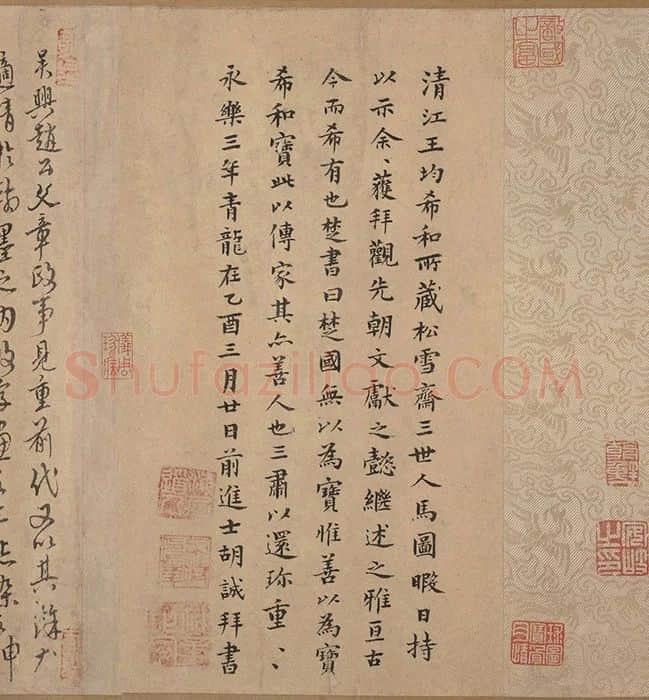 清江王均希和所藏松雪齋三世人馬圖暇日持
以示余、獲拜觀先朝文獻之懿繼述之雅亘古
今而希有也楚書曰楚國無以為寶惟善以為寶
希和寶此以傳家其亦善人也三肅以還珎重、、
永樂三年青龍在乙酉三月廿日前進士胡誠拜書
吴興趙公文章政事見重前代又以其餘力
適情於翰墨之内故字畫
Shufaziliao.COM